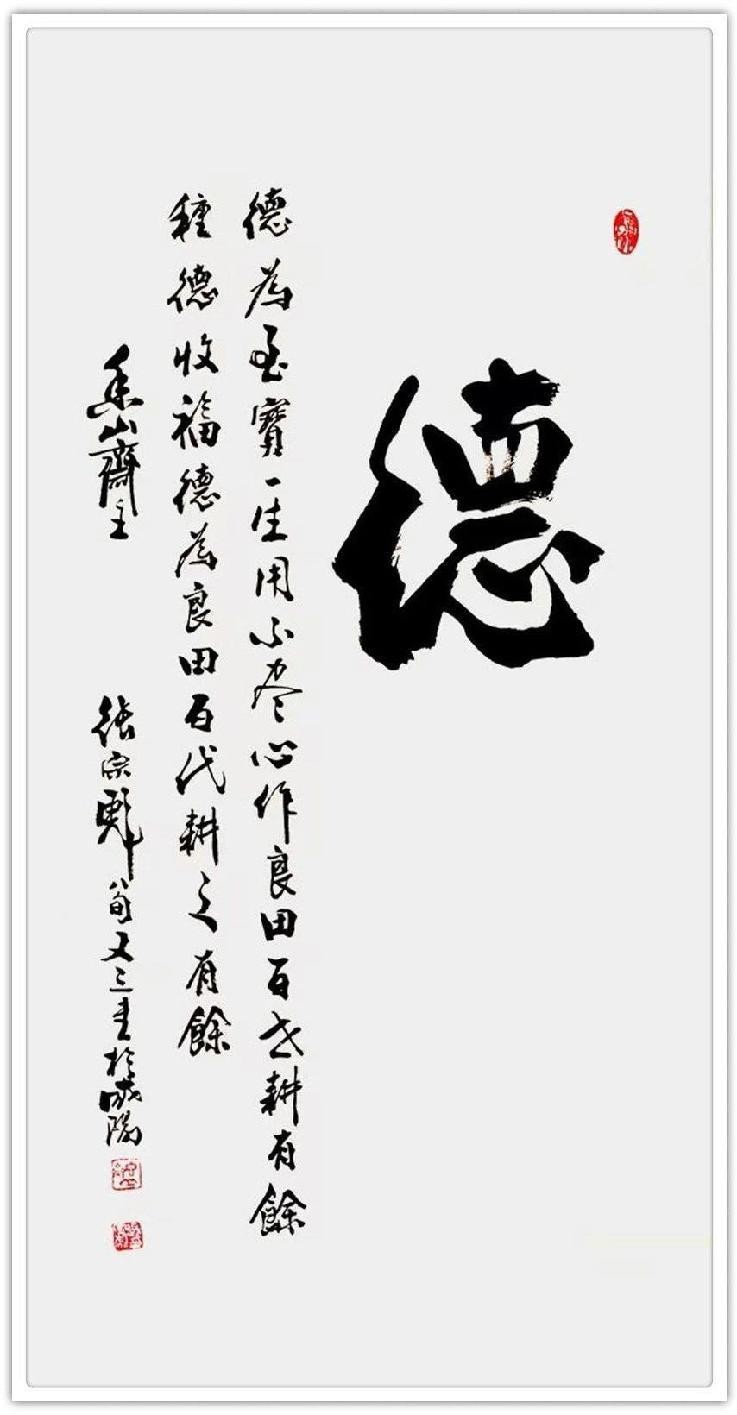 德
德為至寶一生用不尽心作良田百世耕有餘
種德收福德為良田百代耕之有餘
山齋主 張宗彪 八旬又三書於咸陽